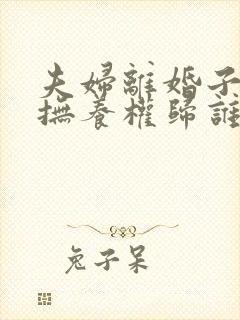 夫婦離婚子
撫養權歸誰
兔子呆